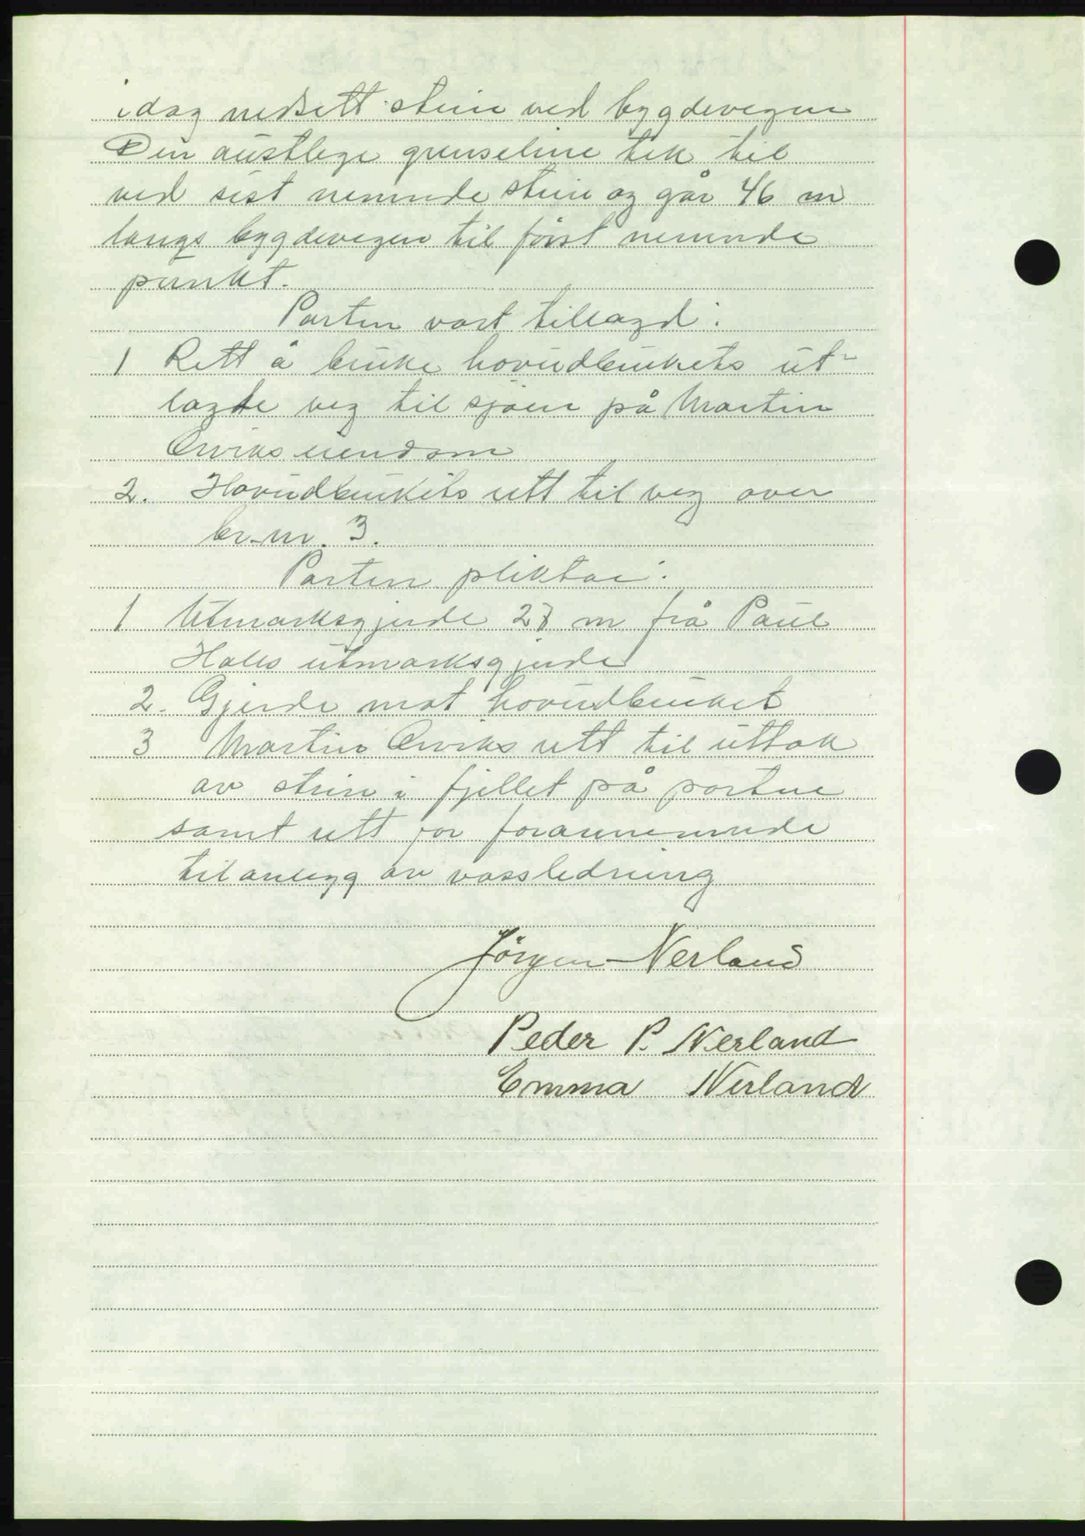 idag nedsett stein ved bygdevegen
Den austlege grenseline tek til
ved sist nemnde stein og går 46 m
langs bygdevegen til först nemnde
punkt.
Parten vart tillagd:
1 Rett å bruke hovudbrukets ut-
lagde veg til sjöen på Martin
Orviks eiendom
2. Hovudbrukets rett til veg over
br.nr. 3.
Parten pliktar:
1 Utmarksgjerde 27 m frå Paul
Hols utmarksgjerde
2. Gjerde mot hovudbruket
3 Martin Orviks rett til uttak
av stein i fjellet på parten
samt rett for forannemnde
til anlegg av vassledning
Jörgen Nerland
Peder P. Nerland
Emma Nerland